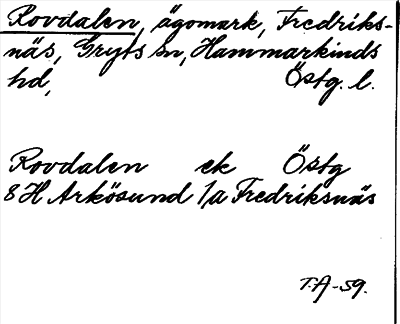 Rovdalen, ägomark, Fredriks-
näs, Gryts sn, Hammarkinds
hd, Östg. l.
Rovdalen ek Östg
8 H Arkösund 1/a Fredriksnäs
T.A-59.